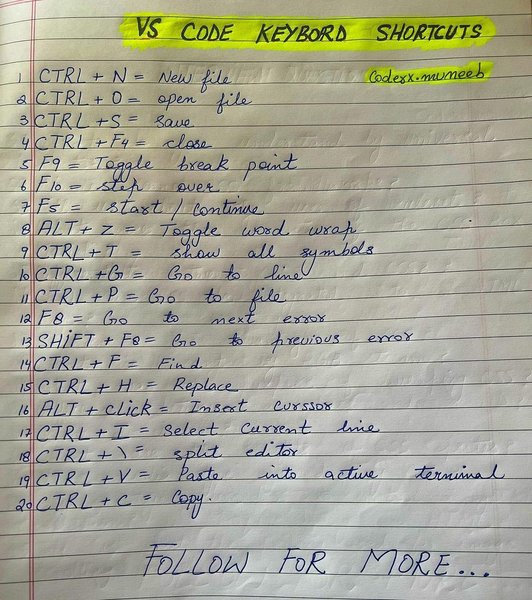 VS CODE KEYBORD SHORTCUTS
coderx.muneeb
1 CTRL + N = New file
2 CTRL + O = open file
3 CTRL + S = save
4 CTRL + F4 = close
5 F9 = Toggle break point
6 F10 = step over
7 F5 = start / continue
8 ALT + Z = Toggle word wrap
9 CTRL + T = show all symbols
10 CTRL + G = Go to line
11 CTRL + P = Go to file
12 F8 = Go to next error
13 SHIFT + F8 = Go to previous error
14 CTRL + F = Find
15 CTRL + H = Replace
16 ALT + click = Insert curssor
17 CTRL + I = select current line
18 CTRL + \ = split editor
19 CTRL + V = Paste into active terminal
20 CTRL + C = Copy.
FOLLOW FOR MORE...